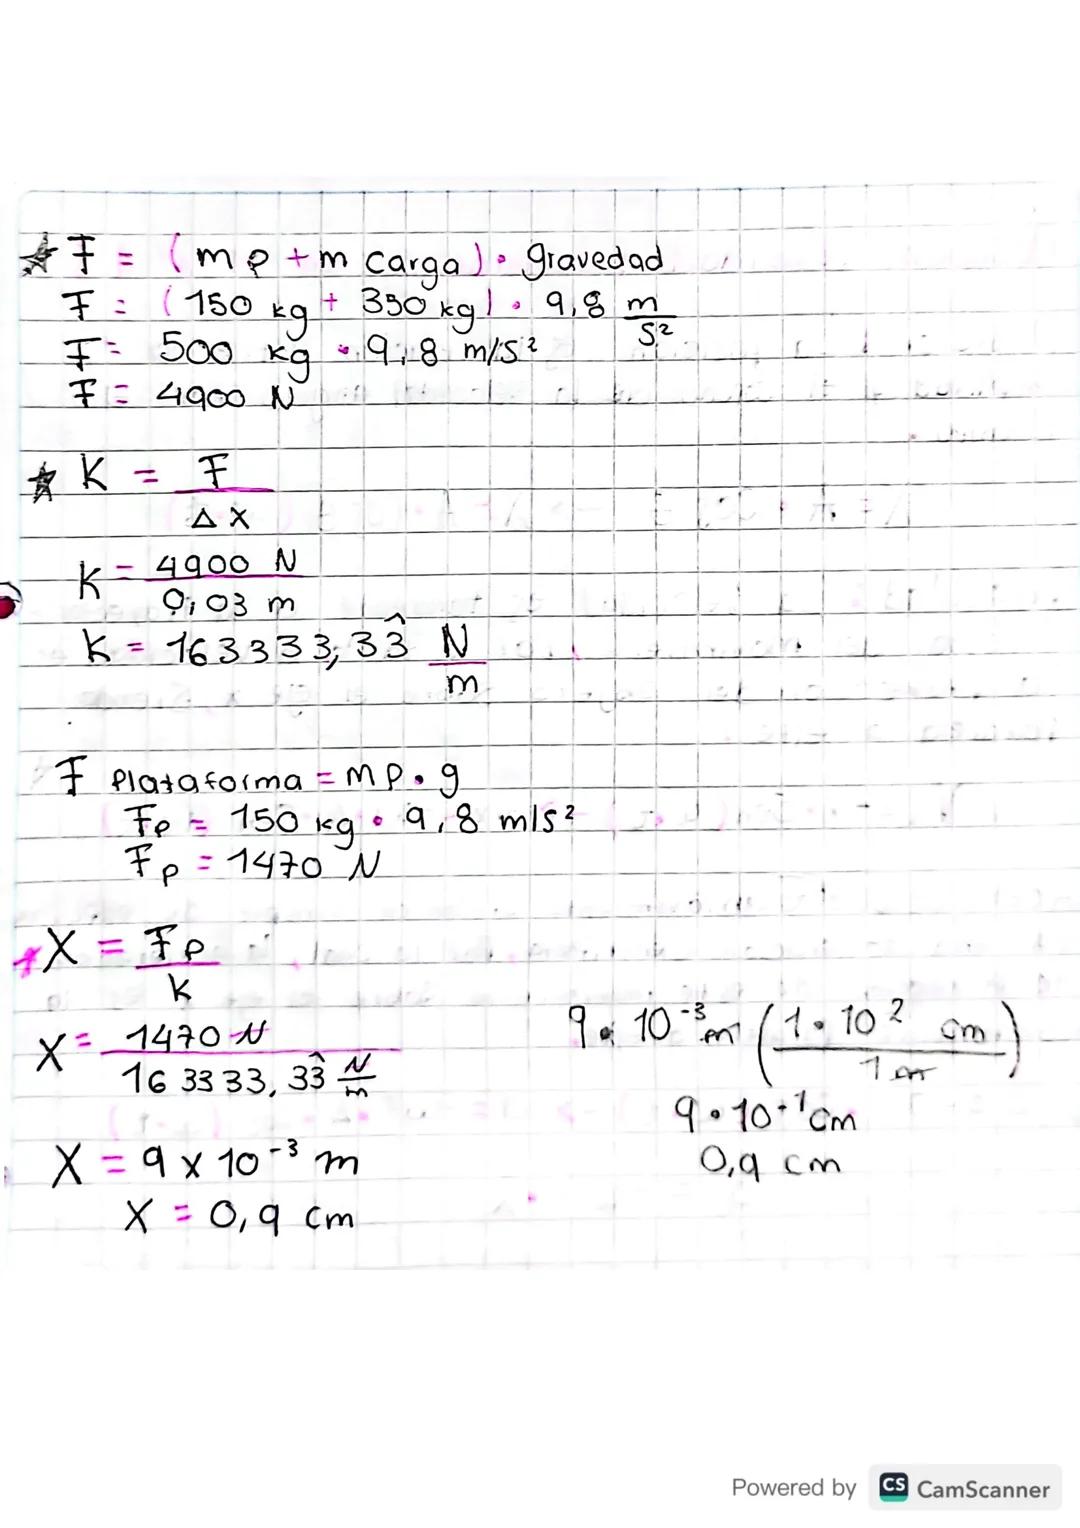 F = (mp + m carga) • gravedad
F = (150 kg + 350 kg) • 9,8 m/s²
F = 500 kg • 9,8 m/s²
F = 4900 N
K = F / Δx
K = 4900 N / 0,03 m
K = 163333,33̂ N/m
F Plataforma = mp • g
Fp = 150 kg • 9,8 m/s²
Fp = 1470 N
X = Fp / K
X = 1470 N / 163333,33̂ N/m
X = 9 x 10⁻³ m
X = 0,9 cm
9 • 10⁻³ m (1 • 10² cm / 1 m)
9 • 10⁻¹ cm
0,9 cm
Powered by CS CamScanner